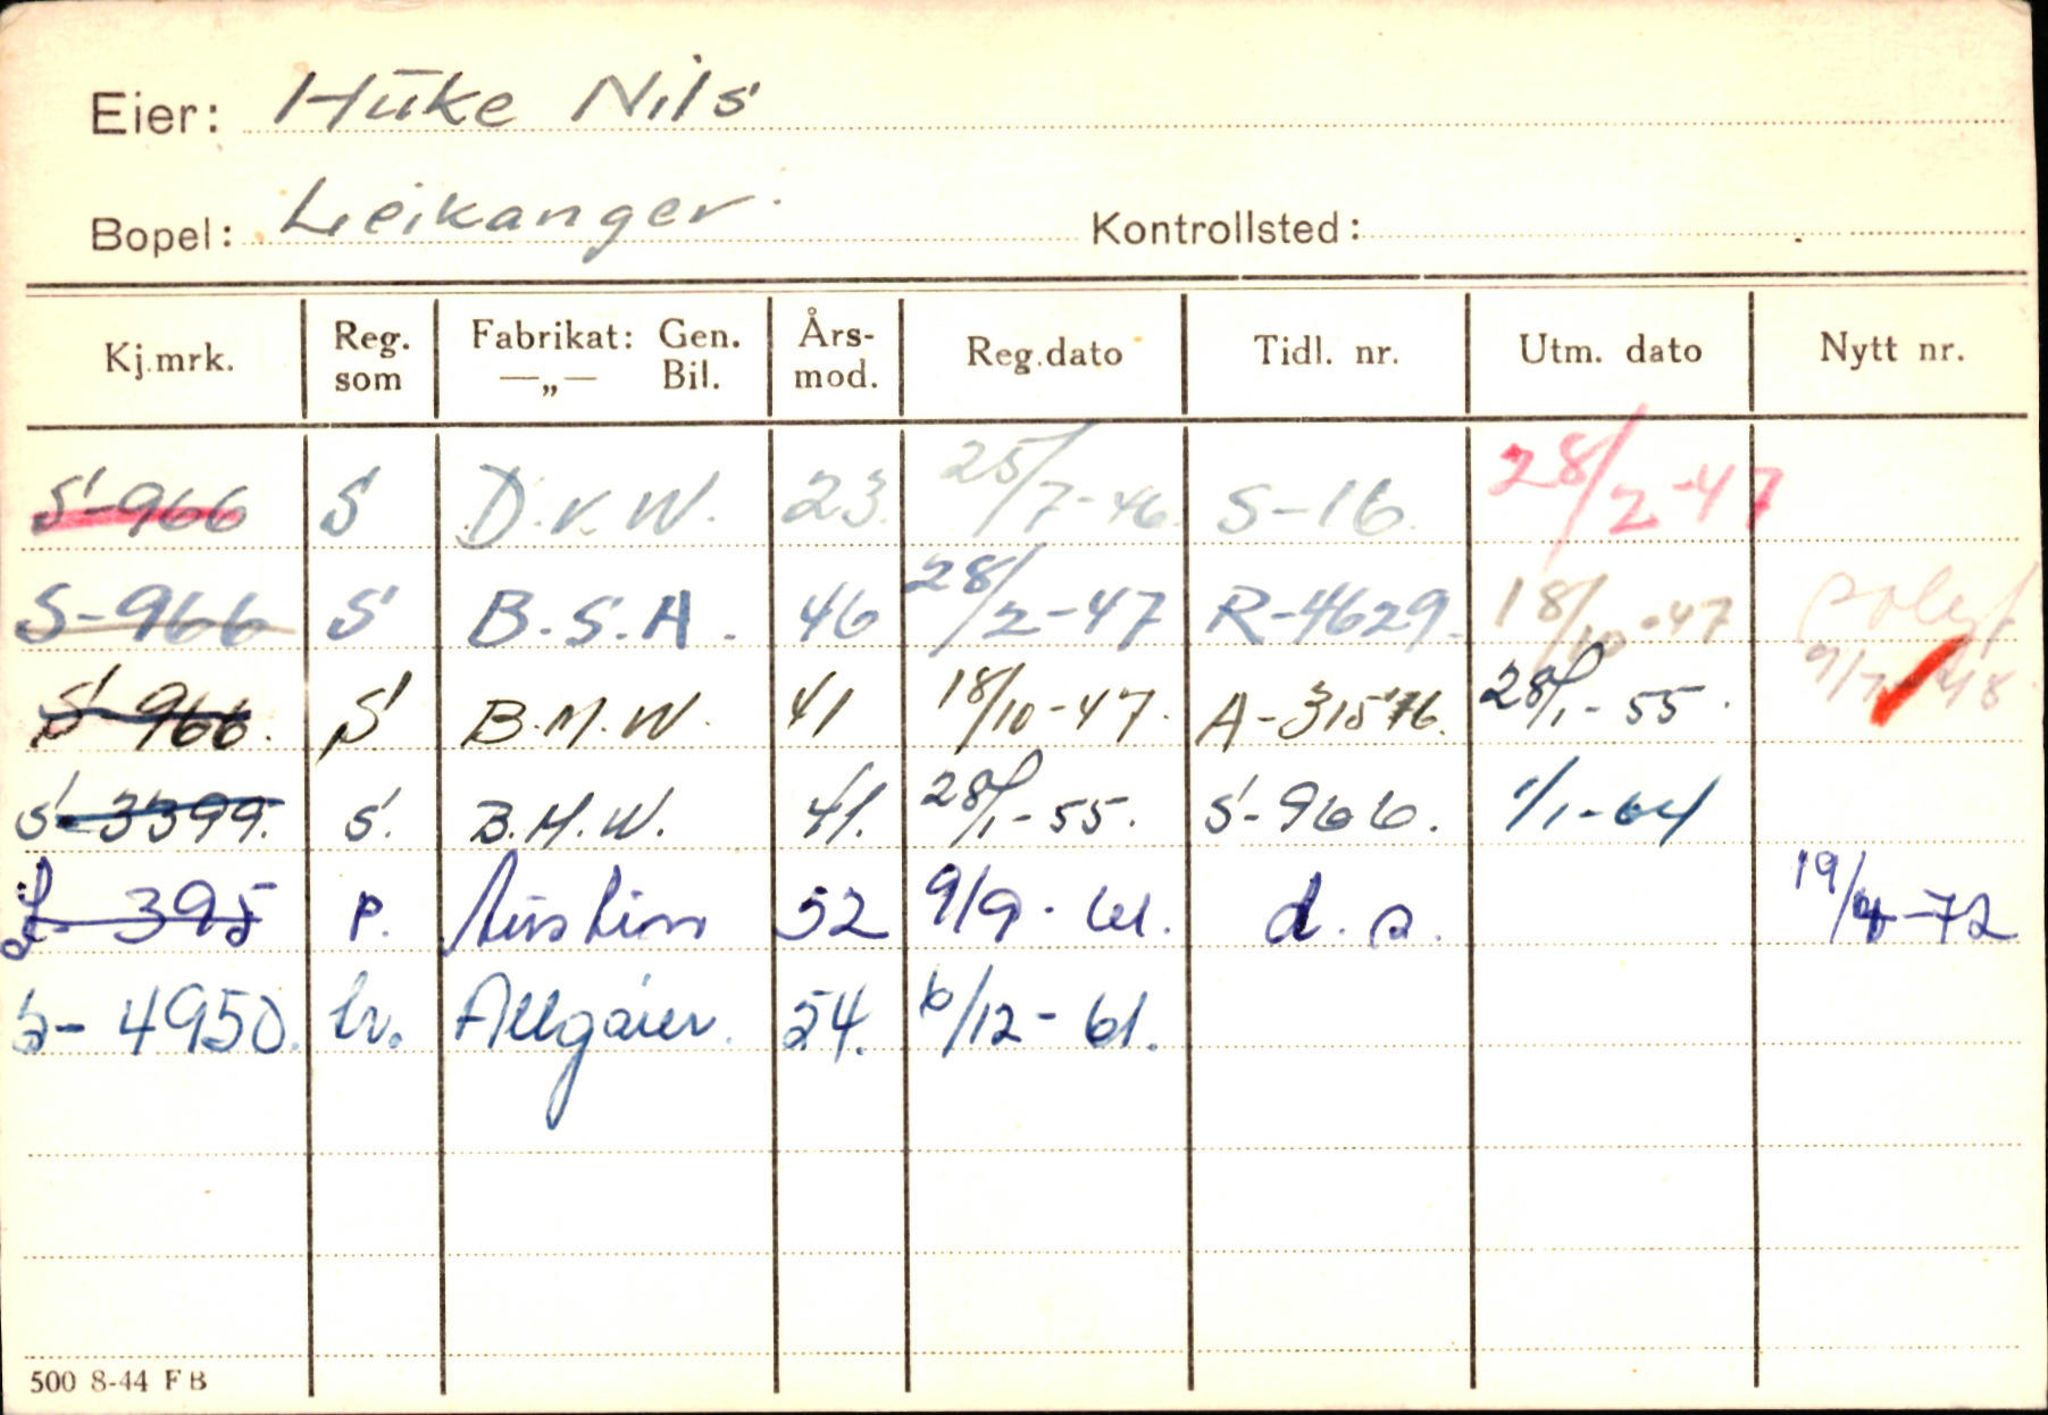 Eier: Hūke Nils
Bopel: Leikanger. Kontrollsted:
Kj.mrk. Reg. som Fabrikat: Gen. —„— Bil. Års- mod. Reg.dato Tidl. nr. Utm. dato Nytt nr.
S-966 S D.K.W. 23. 25/7-46. S-16. 28/2-47
S-966 S B.S.A. 46 28/2-47 R-4629. 18/10-47
S-966. S B.M.W. 41 18/10-47. A-31576. 28/1-55. 9/7-48
S-3399. S. B.M.W. 41. 28/1-55. S-966. 1/1-64
S-395 P. Austin 52 9/9-61. d.o. 19/4-72
S-4950. Tr. Allgaier. 54. 6/12-61.
500 8-44 FB